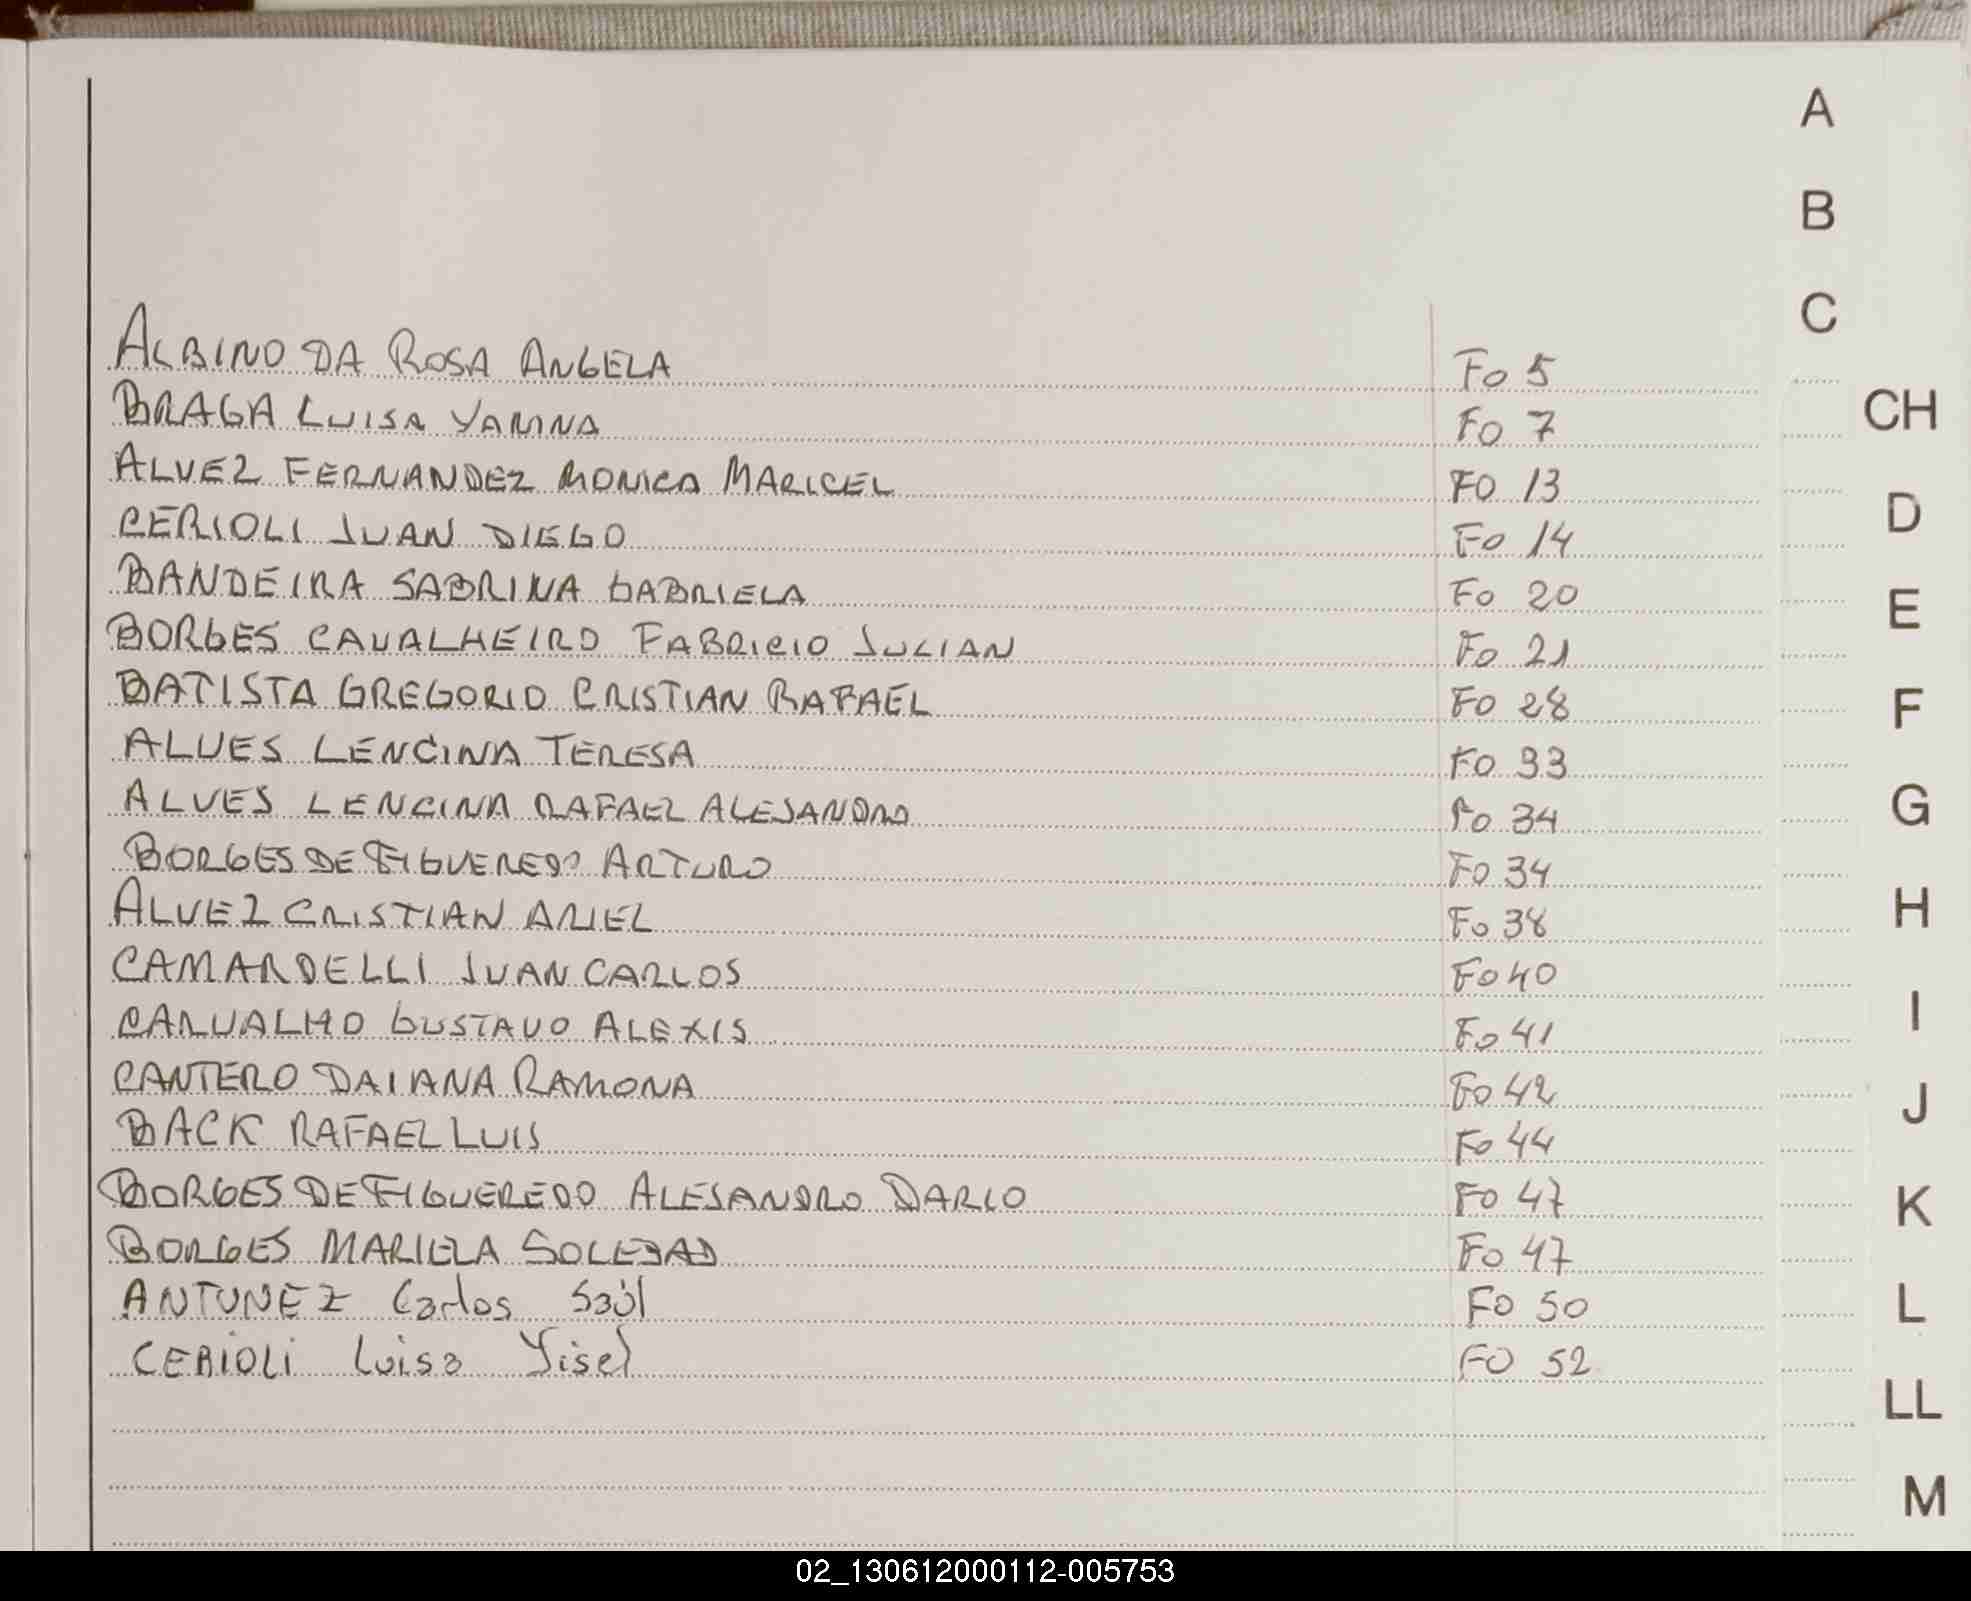 A
B
C
ALBINO DA ROSA ANGELA Fo 5
BRAGA LUISA YANINA Fo 7
CH
ALVEZ FERNANDEZ MONICA MARICEL FO 13
D
CERIOLI JUAN DIEGO Fo 14
BANDEIRA SABRINA GABRIELA Fo 20
E
BORGES CAVALHEIRO FABRICIO JULIAN Fo 21
BATISTA GREGORIO CRISTIAN RAFAEL FO 28
F
ALVES LENCINA TERESA FO 33
ALVES LENCINA RAFAEL ALESANDRO Fo 34
G
BORGES DE FIGUEREDO ARTURO FO 34
ALVEZ CRISTIAN ARIEL Fo 38
H
CAMARDELLI JUAN CARLOS Fo 40
CARVALHO GUSTAVO ALEXIS Fo 41
I
CANTERO DAIANA RAMONA Fo 42
J
BACK RAFAEL LUIS Fo 44
BORGES DE FIGUEREDO ALESANDRO DARIO FO 47
K
BORGES MARIELA SOLEDAD Fo 47
ANTUNEZ Carlos Saúl FO 50
L
CERIOLI Luisa Yisel FO 52
LL
M
02_130612000112-005753